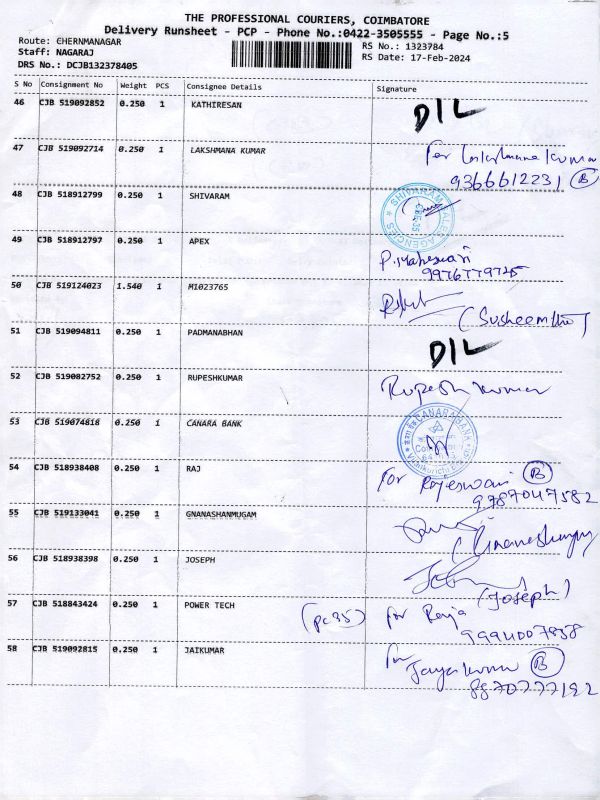 THE PROFESSIONAL COURIERS, COIMBATORE
Delivery Runsheet - PCP - Phone No.:0422-3505555 - Page No.:5
Route: CHERNMANAGAR
RS No.: 1323784
Staff: NAGARAJ
RS Date: 17-Feb-2024
DRS No.: DCJB132378405
S No Consignment No Weight PCS Consignee Details Signature
46 CJB 519092852 0.250 1 KATHIRESAN D/L
47 CJB 519092714 0.250 1 LAKSHMANA KUMAR For Lakshmana kumar
9366612231 B
48 CJB 518912799 0.250 1 SHIVARAM
SHIVARAM SALES AGENCIES
49 CJB 518912797 0.250 1 APEX P. Maheswari
9976779725
50 CJB 519124023 1.540 1 M1023765
51 CJB 519094811 0.250 1 PADMANABHAN D/L
52 CJB 519082752 0.250 1 RUPESHKUMAR Rupesh kumar
53 CJB 519074818 0.250 1 CANARA BANK
CANARA BANK
54 CJB 518938408 0.250 1 RAJ For Rajeswari B
9787047582
55 CJB 519133041 0.250 1 GNANASHANMUGAM
56 CJB 518938398 0.250 1 JOSEPH
(Joseph)
57 CJB 518843424 0.250 1 POWER TECH for Raja
9994007838
58 CJB 519092815 0.250 1 JAIKUMAR For
Jayakumar B
8870777192